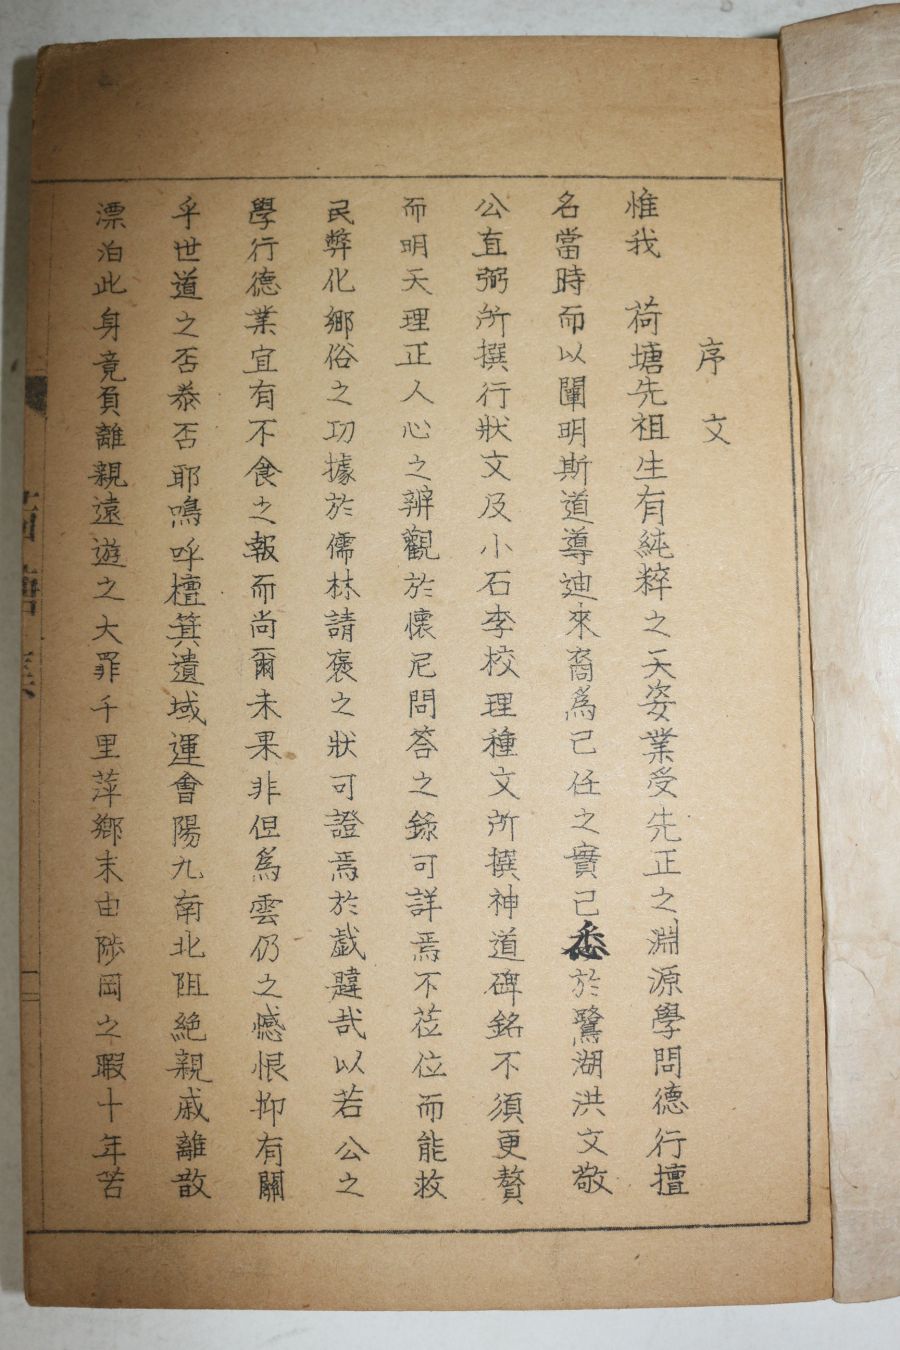 序文
惟我 荷塘先祖生有純粹之天姿業受先正之淵源學問德行擅
名當時而以闡明斯道導迪來裔爲己任之實已悉於鷺湖洪文敬
公直弼所撰行狀文及小石李校理種文所撰神道碑銘不須更贅
而明天理正人心之辨觀於懷尼問答之錄可詳焉不莅位而能救
民弊化鄉俗之功據於儒林請褒之狀可證焉於戱韙哉以若公之
學行德業宜有不食之報而尚爾未果非但爲雲仍之憾恨抑有關
乎世道之否泰否耶鳴呼檀箕遺域運會陽九南北阻絶親戚離散
漂泊此身竟負離親遠遊之大罪千里萍鄉末由陟岡之暇十年苦